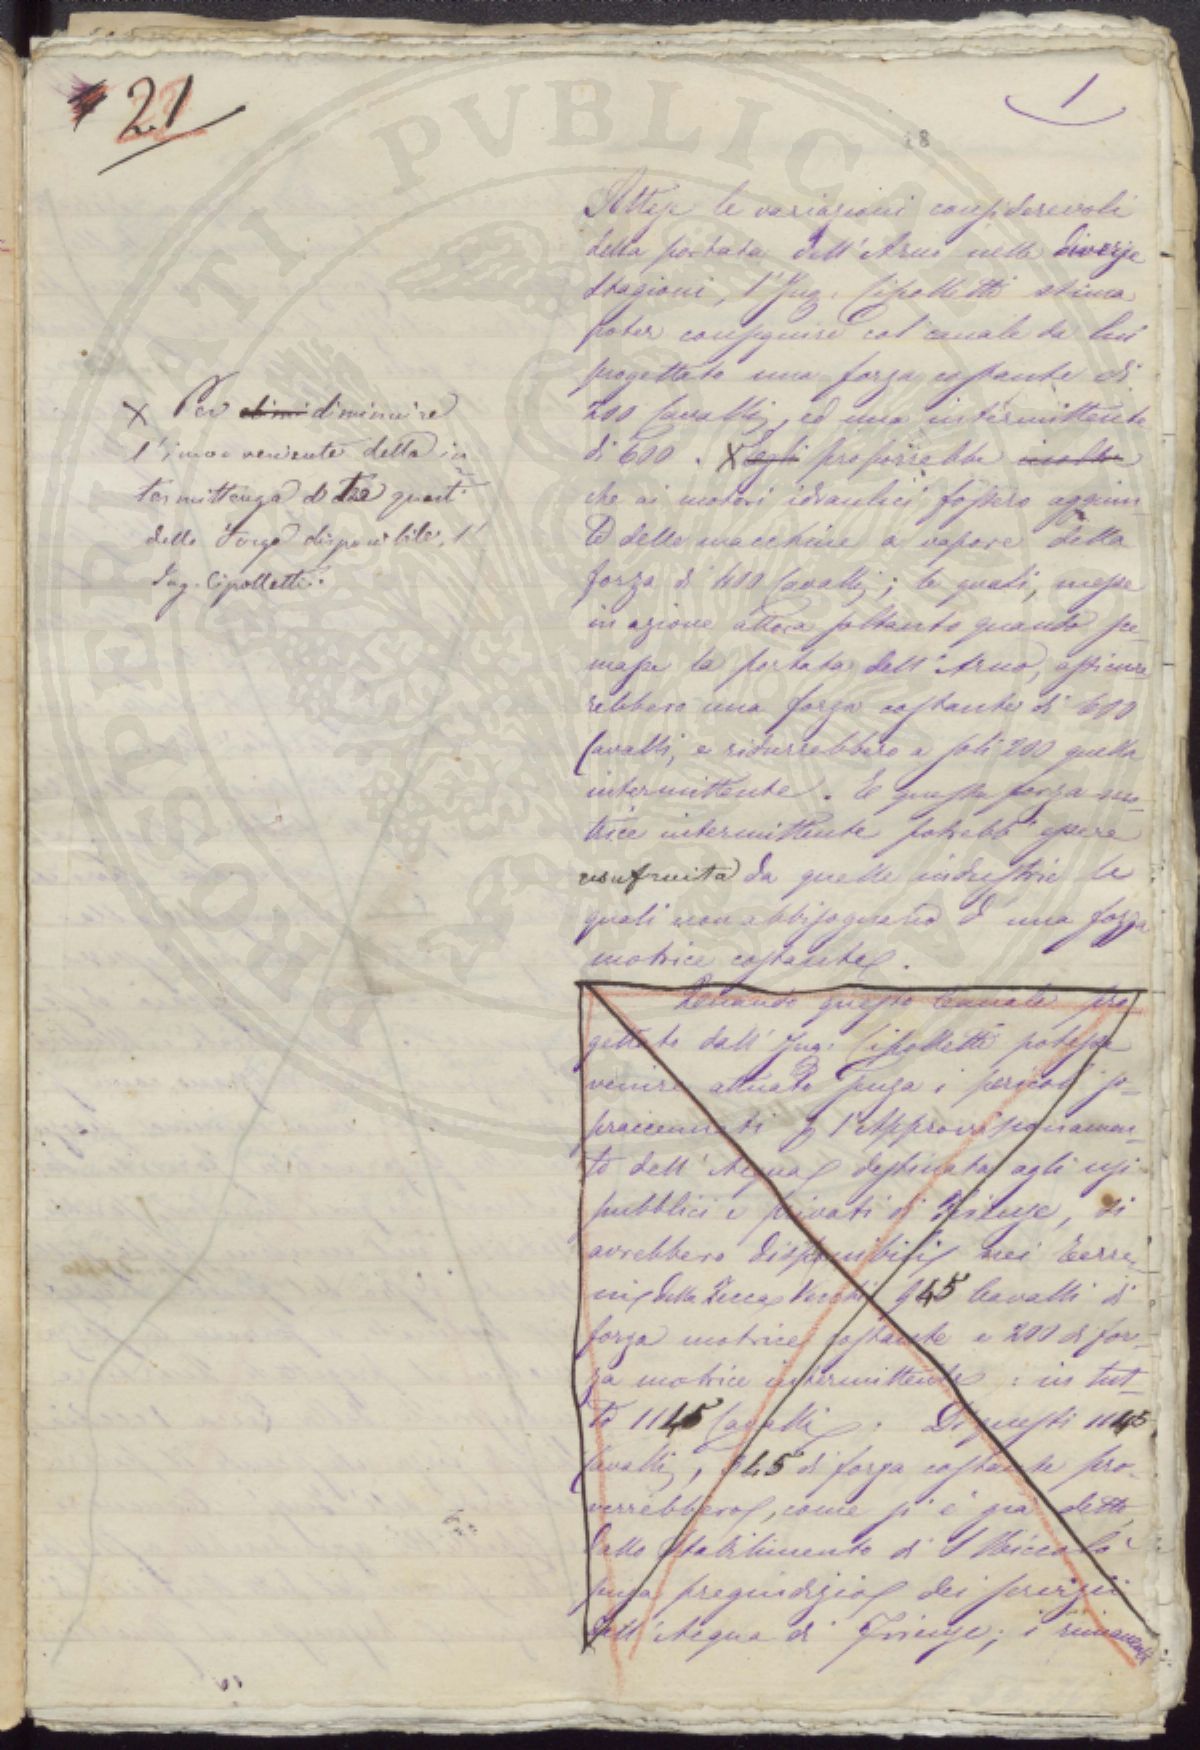 21
1
8
Attese le variazioni considerevoli
della portata dell'Arno nelle diverse
stagioni, l'Ing. Cipolletti stima
poter conseguire col canale da lui
progettato una forza costante di
200 Cavalli, ed una intermittente
di 600. X Egli proporrebbe inoltre
che ai motori idraulici fossero aggiun
te delle macchine a vapore della
forza di 400 Cavalli; le quali, messe
in azione allora soltanto quando sce-
masse la portata dell'Arno, assicure
rebbero una forza costante di 600
Cavalli, e ridurrebbero a soli 200 quella
intermittente. E questa forza mo-
trice intermittente potrebb'essere
usufruita da quelle industrie le
quali non abbisognano d'una forza
motrice costante.
X Per dimi diminuire
l'inconveniente della in
termittenza di tre quarti
della forza disponibile, l'
Ing. Cipolletti.
Quando questo Canale pro
gettato dall'Ing. Cipolletti potesse
venire attuato senza i pericoli so-
praccennati p l'Approvvisionamen-
to dell'Acqua destinata agli usi
pubblici e privati di Firenze, si
avrebbero disponibili nei terre
ni della Zecca Vecchia 945 Cavalli di
forza motrice costante e 200 di for-
za motrice intermittente: in tut-
to 1145 Cavalli. Di questi 1145
Cavalli, 945 di forza costante pro-
verrebbero, come si è già detto,
dallo Stabilimento di S Niccolò
senza pregiudizio dei servizii
dell'Acqua di Firenze; i rimanenti
PERITATI PVBLICAE